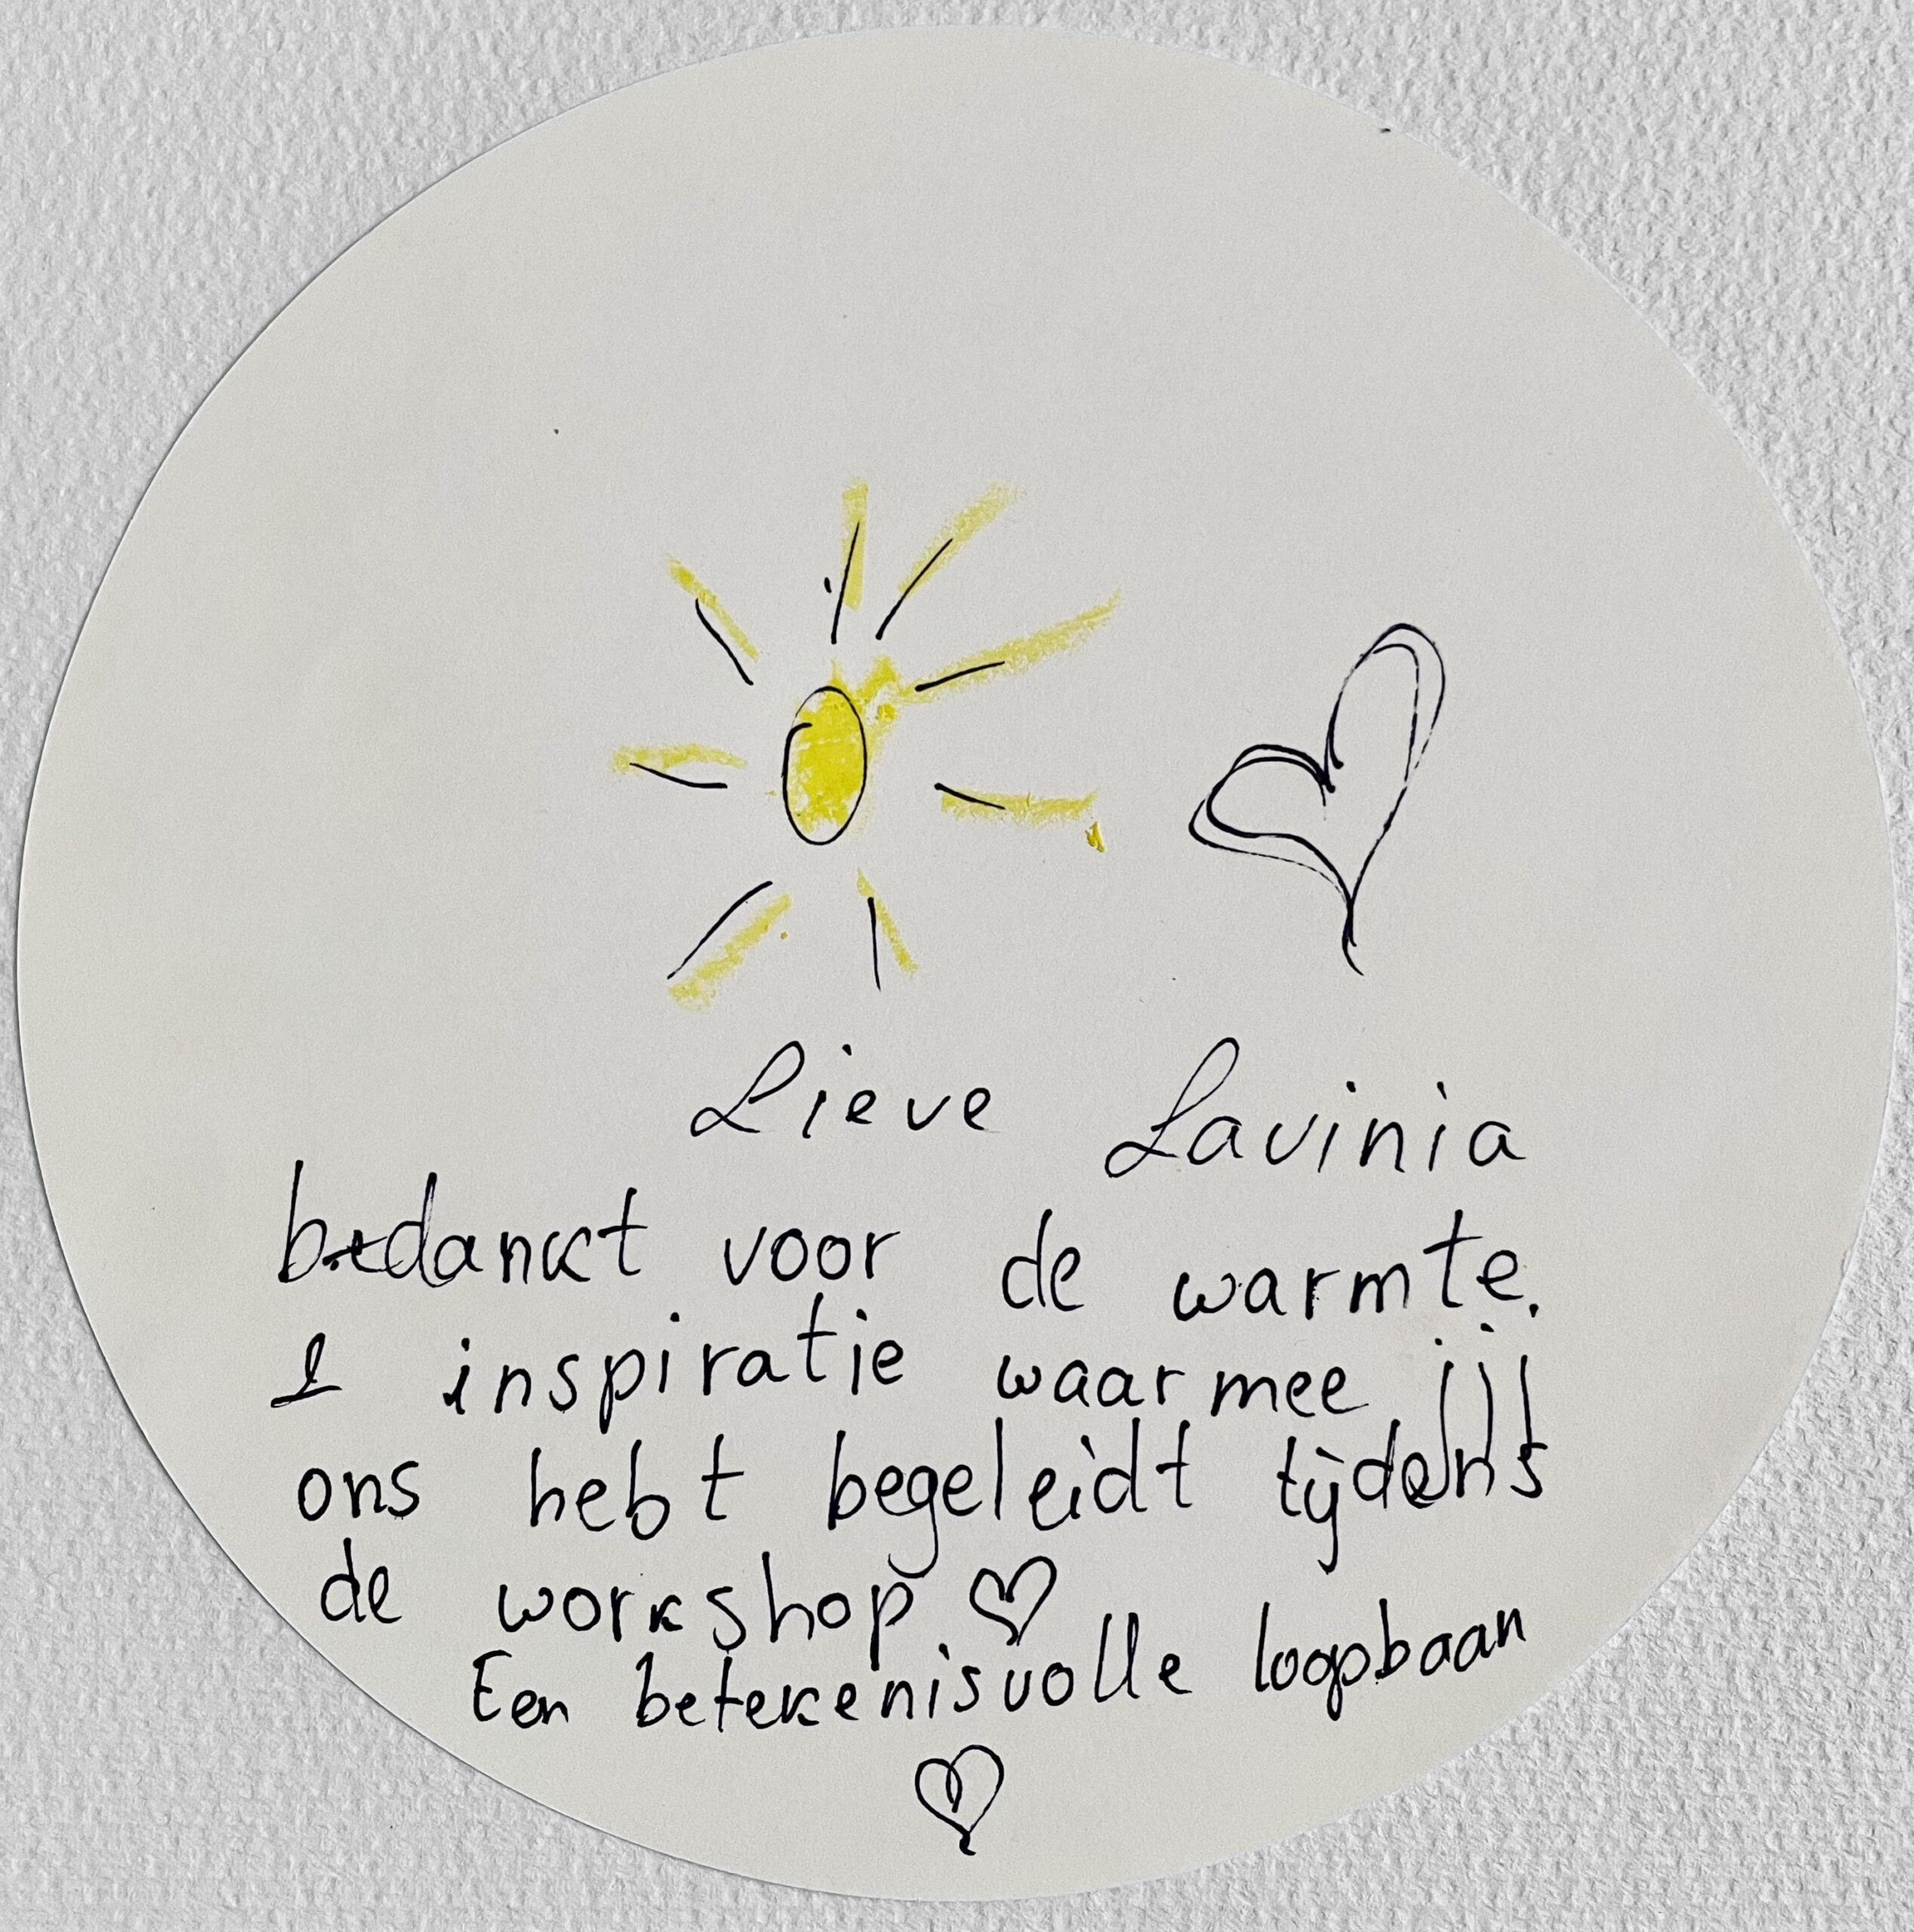 Lieve Lavinia
bedankt voor de warmte.
& inspiratie waarmee jij
ons hebt begeleidt tijdens
de workshop ♡
Een betekenisvolle loopbaan
♡